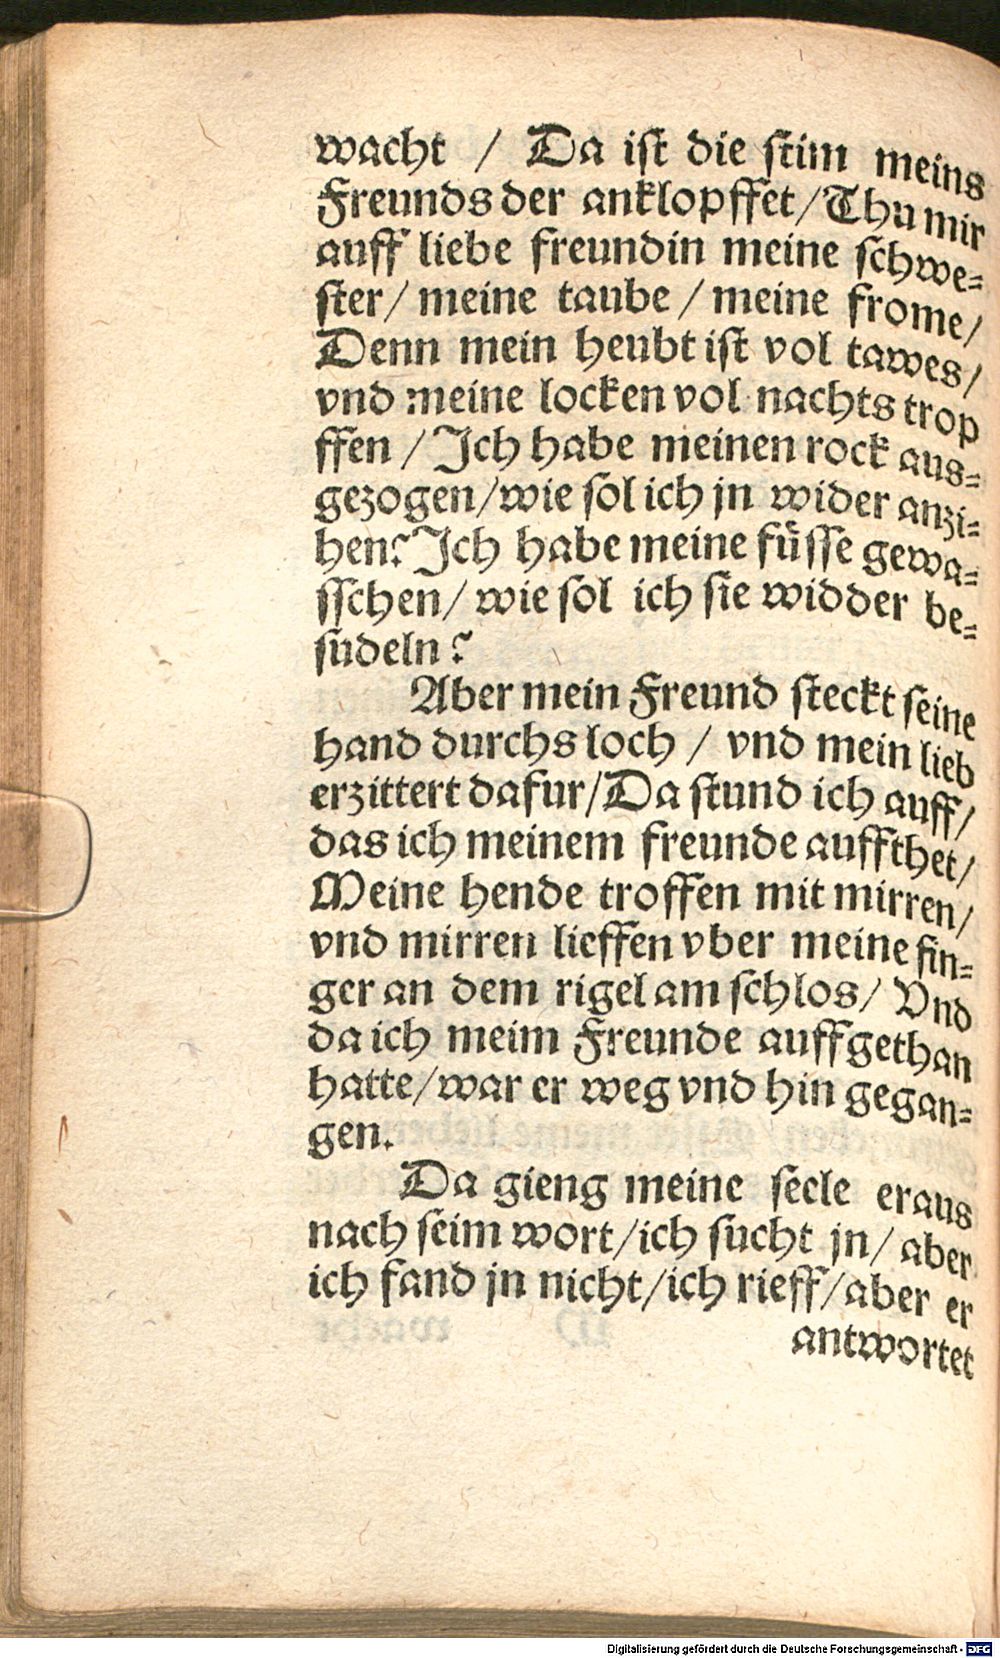 wacht / Da ist die stim meins
Freunds der anklopffet/Thu mir
auff liebe freundin meine schwe-
ster/ meine taube / meine frome/
Denn mein heubt ist vol tawes/
vnd meine locken vol nachts trop
ffen / Ich habe meinen rock aus-
gezogen/wie sol ich jn wider anzi-
hen? Ich habe meine füsse gewa-
sschen/ wie sol ich sie widder be-
sudeln?
Aber mein Freund steckt seine
hand durchs loch / vnd mein lieb
erzittert dafur/Da stund ich auff/
das ich meinem freunde auffthet/
Meine hende troffen mit mirren/
vnd mirren lieffen vber meine fin-
ger an dem rigel am schlos/ Vnd
da ich meim Freunde auffgethan
hatte/war er weg vnd hin gegan-
gen.
Da gieng meine seele eraus
nach seim wort/ich sucht jn/ aber
ich fand jn nicht/ich rieff/aber er
antwortet
Digitalisierung gefördert durch die Deutsche Forschungsgemeinschaft - DFG